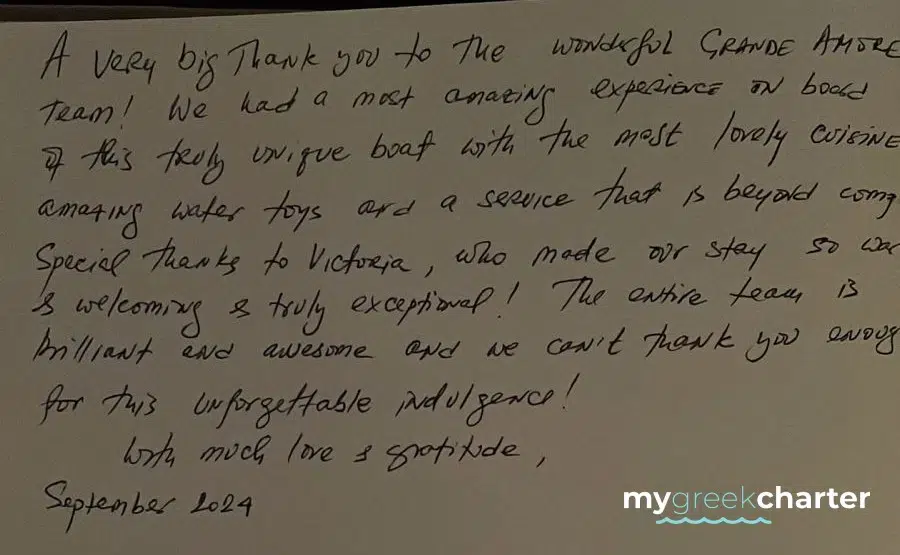 A very big Thank you to the wonderful GRANDE AMORE
team! We had a most amazing experience on board
of this truly unique boat with the most lovely cuisine
amazing water toys and a service that is beyond comp
Special thanks to Victoria, who made our stay so war
& welcoming & truly exceptional! The entire team is
brilliant and awesome and we can't thank you enoug
for this unforgettable indulgence!
With much love & gratitude,
September 2024
mygreekcharter